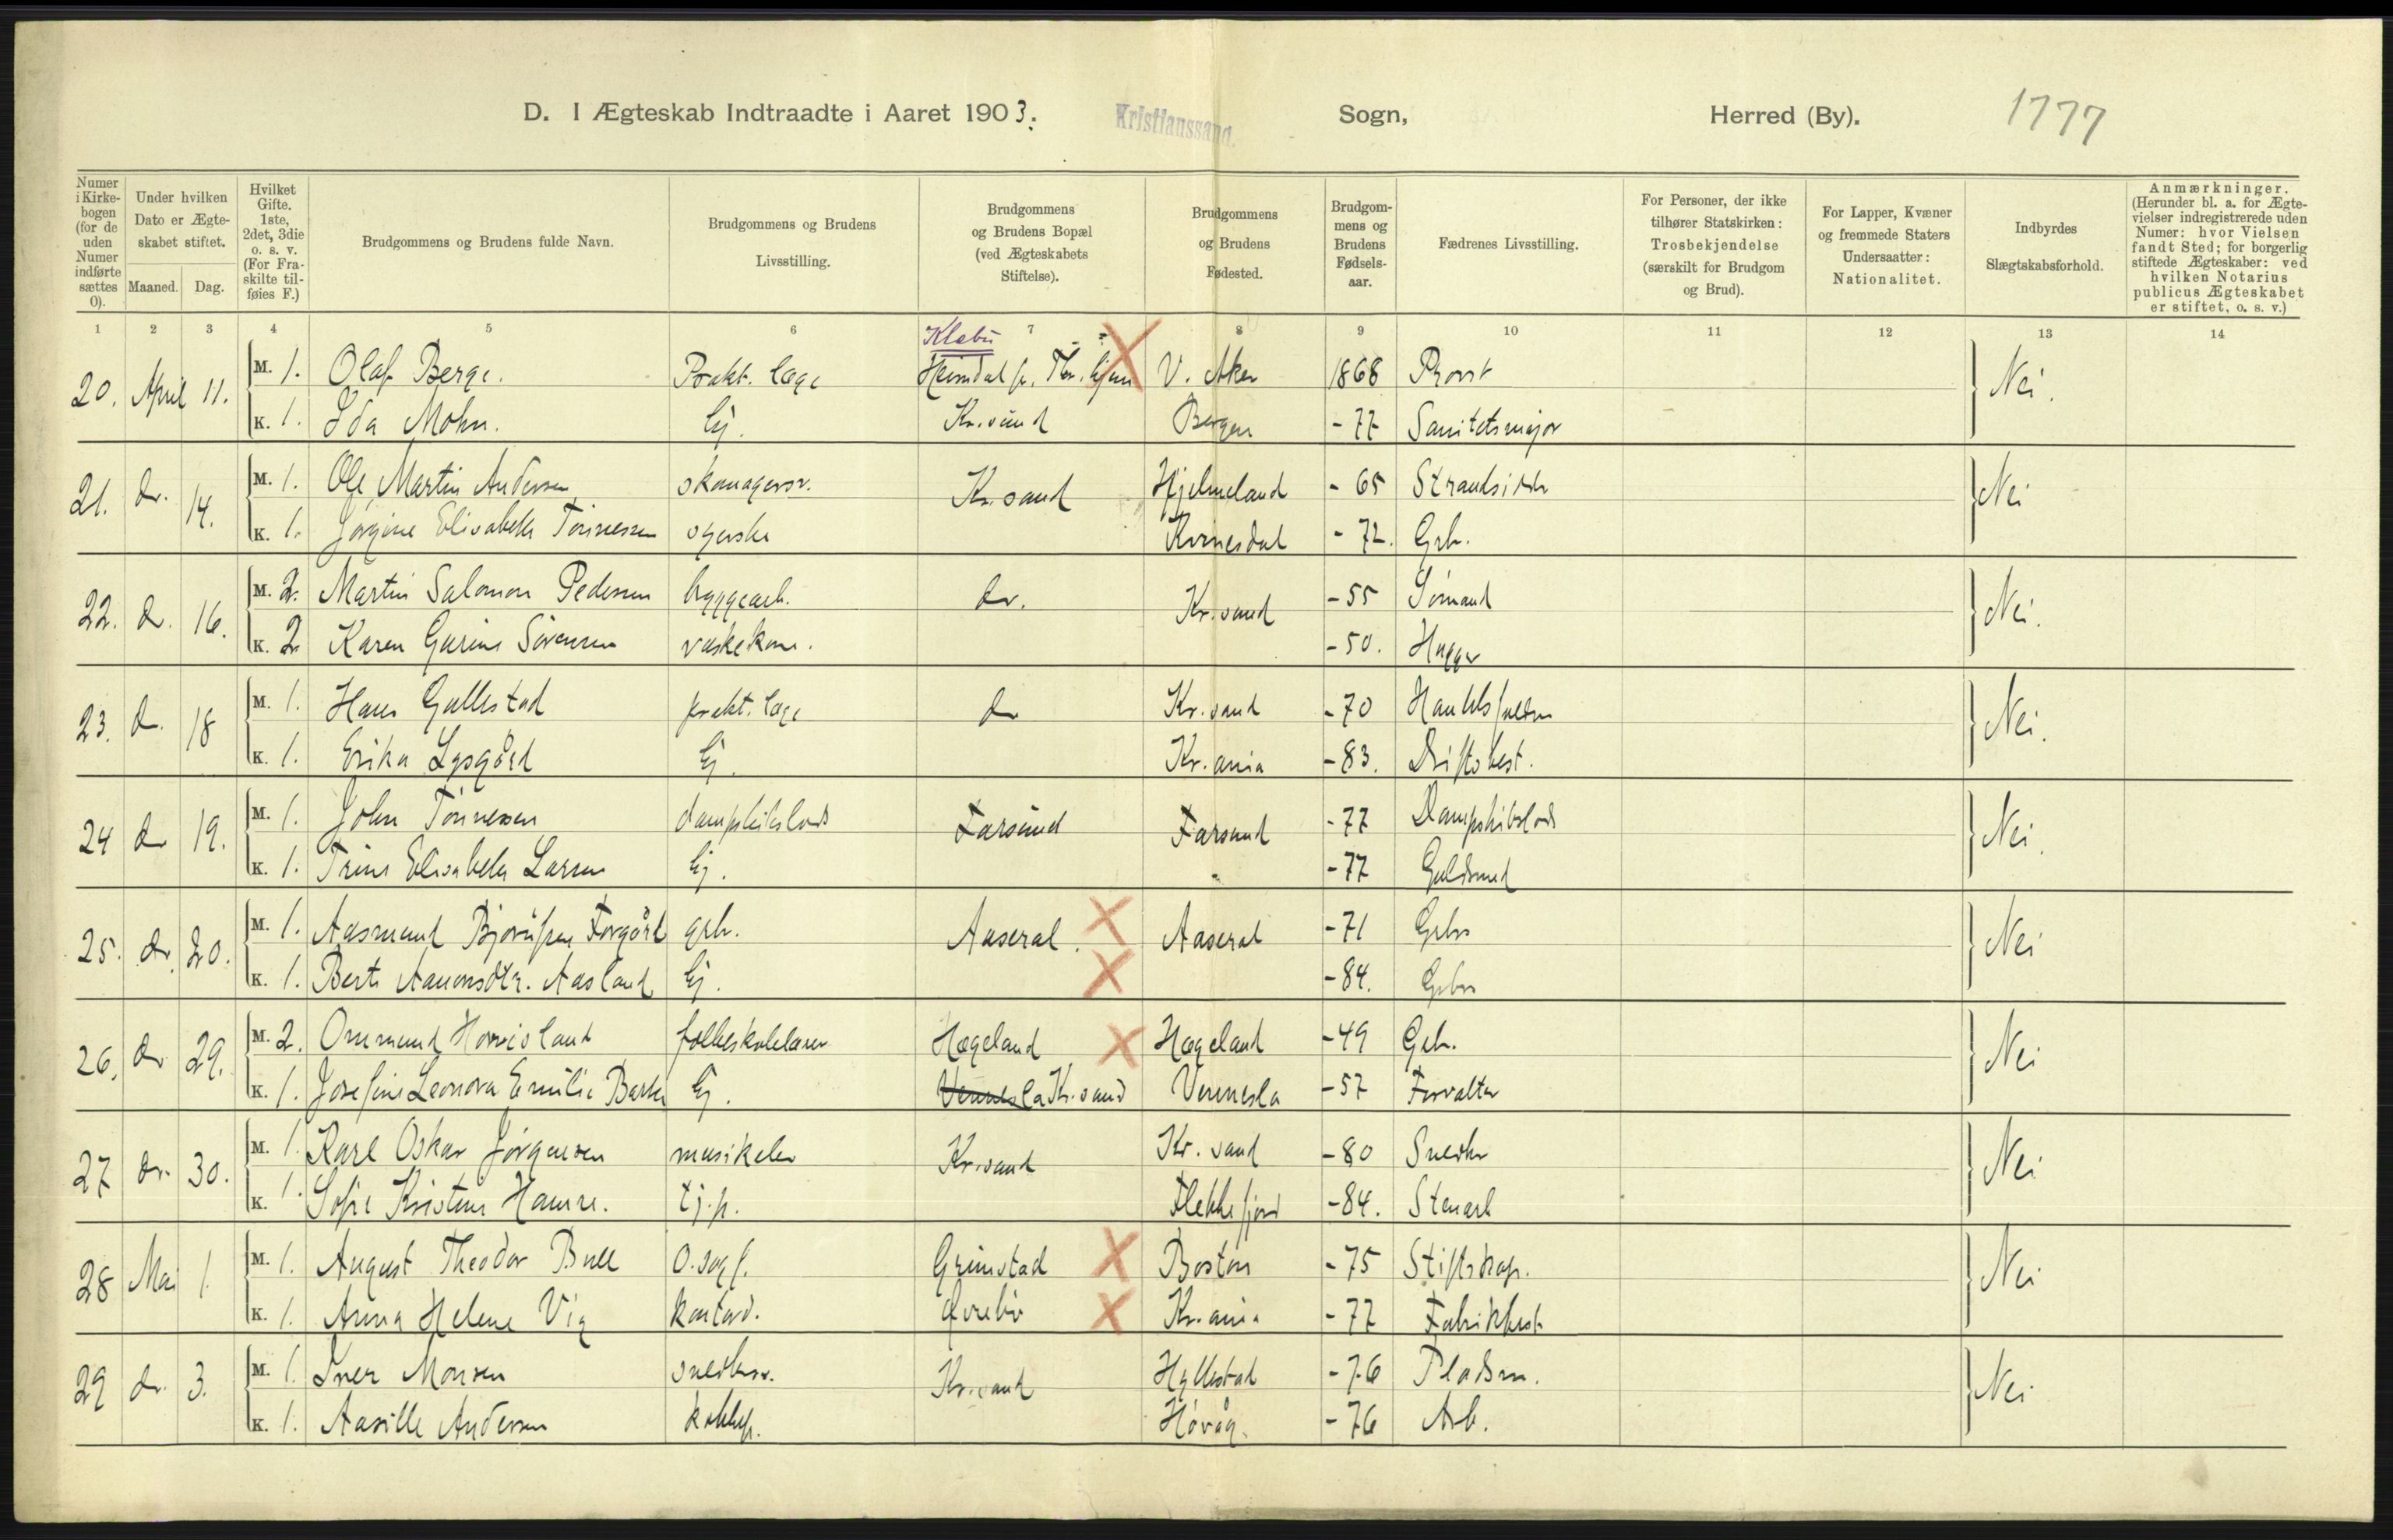 D. I Ægteskab Indtraadte i Aaret 1903. Kristianssand. Sogn, Herred (By). 1777
Numer i Kirke-bogen (for de uden Numer indførte sættes 0).
Under hvilken Dato er Ægte-skabet stiftet.
Maaned. Dag.
Hvilket Gifte. 1ste, 2det, 3die o. s. v. (For Fra-skilte til-føies F.)
Brudgommens og Brudens fulde Navn.
Brudgommens og Brudens Livsstilling.
Brudgommens og Brudens Bopæl (ved Ægteskabets Stiftelse).
Brudgommens og Brudens Fødested.
Brudgom-mens og Brudens Fødsels-aar.
Fædrenes Livsstilling.
For Personer, der ikke tilhører Statskirken: Trosbekjendelse (særskilt for Brudgom og Brud).
For Lapper, Kvæner og fremmede Staters Undersaatter: Nationalitet.
Indbyrdes Slægtskabsforhold.
Anmærkninger. (Herunder bl. a. for Ægte-vielser indregistrerede uden Numer: hvor Vielsen fandt Sted; for borgerlig stiftede Ægteskaber: ved hvilken Notarius publicus Ægteskabet er stiftet, o. s. v.)
1 2 3 4 5 6 7 8 9 10 11 12 13 14
Klæbu
20. April 11. M. 1. Olaf Berge. Prakt. læge Heimdal V. Aker 1868 Provst Nei.
K. 1. Ida Mohn. Ej. Kr.sund Bergen -77 Sanitetsmajor
21. do. 14. M. 1. Ole Martin Andersen skomagersv. Kr.sand Hjelmeland -65 Strandsidder Nei
K. 1. Jørgine Elisabeth Tønnessen syerske Kvinesdal -72. Grb.
22. do. 16. M. 2. Martin Salomon Pedersen byggearb. do. Kr.sand -55 Sømand Nei.
K. 2 Karen Gurine Sørensen vaskekone. -50. Hugger
23. do. 18 M. 1. Hans Gullestad prakt. læge do Kr.sand -70 Nei.
K. 1. Erika Lysgård Ej. Kr.ania -83. Driftsbest.
24 do 19. M. 1. John Tönnessen dampskibslods Farsund Farsund -77 Dampskibslods Nei.
K. 1. Trine Elisabeth Larsen Ej. " -77 Guldsmed
25. do. 20. M. 1. Aasmund Forgård grb. Aaseral. Aaseral -71 Grbr Nei
K. 1. Berte Aanonsdtr. Aasland Ej. -84. Grbr
26. do 29. M. 2. Ommund Hornisland folkeskolelærer Hægeland Hægeland -49 Grb. Nei
K. 1. Josefine Leonora Emilie Barth Ej. Vennesla Kr.sand Vennesla -57 Forvalter
27 do. 30. M. 1. Karl Oskar Jørgensen musikelev Kr.sand Kr.sand -80 Snedker Nei
K. 1. Sofie Kristine Hamre. tj.p. Flekkefjord -84. Stenarb
28 Mai 1. M. 1. August Theodor Bull O.sagf. Grimstad Boston -75 Stiftskap. Nei
K. 1. Anna Helene Vig kontord. Øvrebø Kr.ania -77 Fabrikbest.
29 do. 3. M. 1. Iver Monsen snedkersv. Kr.sand Hyllestad -76 Pladsm. Nei
K. 1. Aasille Andersen kokkep. Høvåg. -76 Arb.